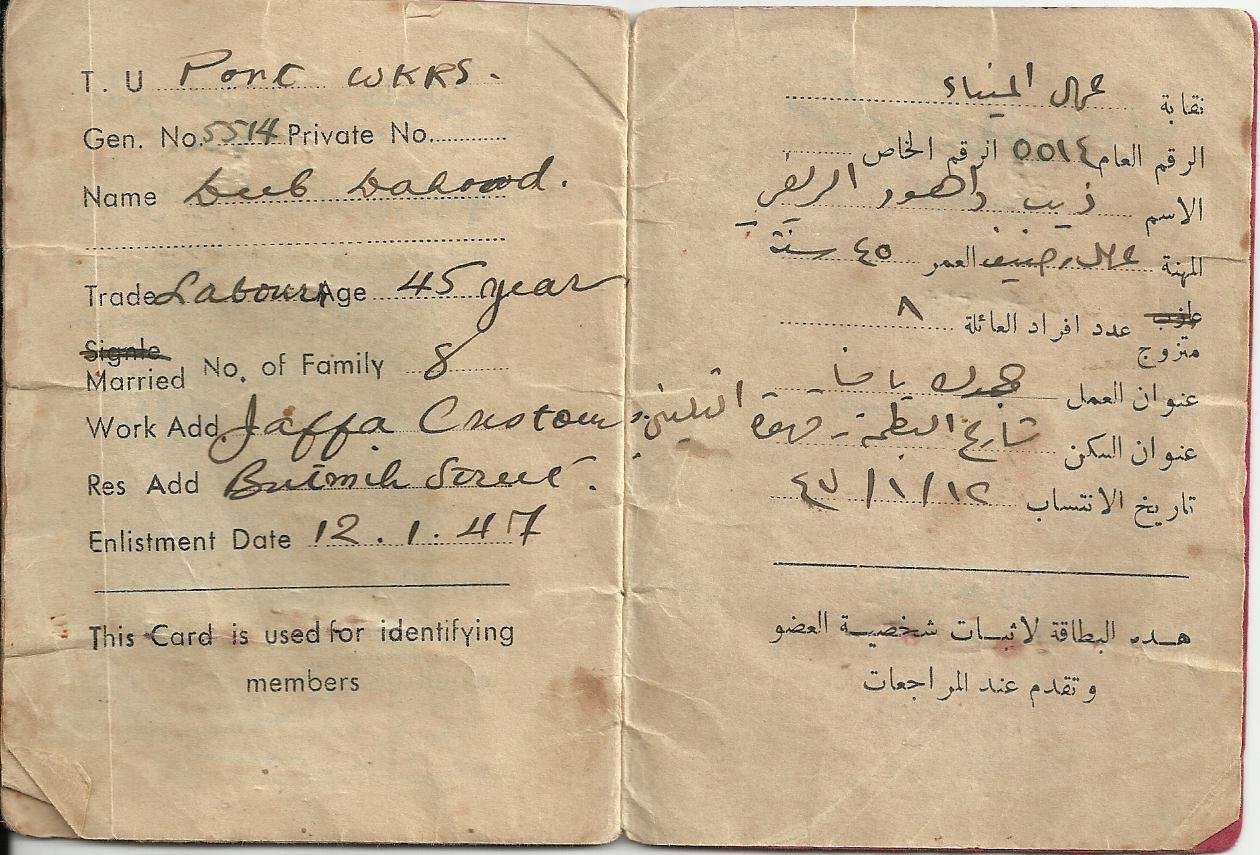 T. U Port WKRS.
Gen. No. 5514 Private No.
Name Deeb Dahood.
Trade Labourer Age 45 year
Signle
Married No. of Family 8
Work Add Jaffa Custom
Res Add Butmih Street.
Enlistment Date 12.1.47
This Card is used for identifying
members
نقابة عمال الميناء
الرقم العام ٥٥١٤ الرقم الخاص
الاسم ذيب داهود
المهنة عمال رصيف العمر ٤٥ سنة
عازب عدد افراد العائلة ٨
متزوج
عنوان العمل جمرك يافا
عنوان السكن شارع البطمة - قهوة
تاريخ الانتساب ١٢/١/٤٧
هذه البطاقة لاثبات شخصية العضو
وتقدم عند المراجعات